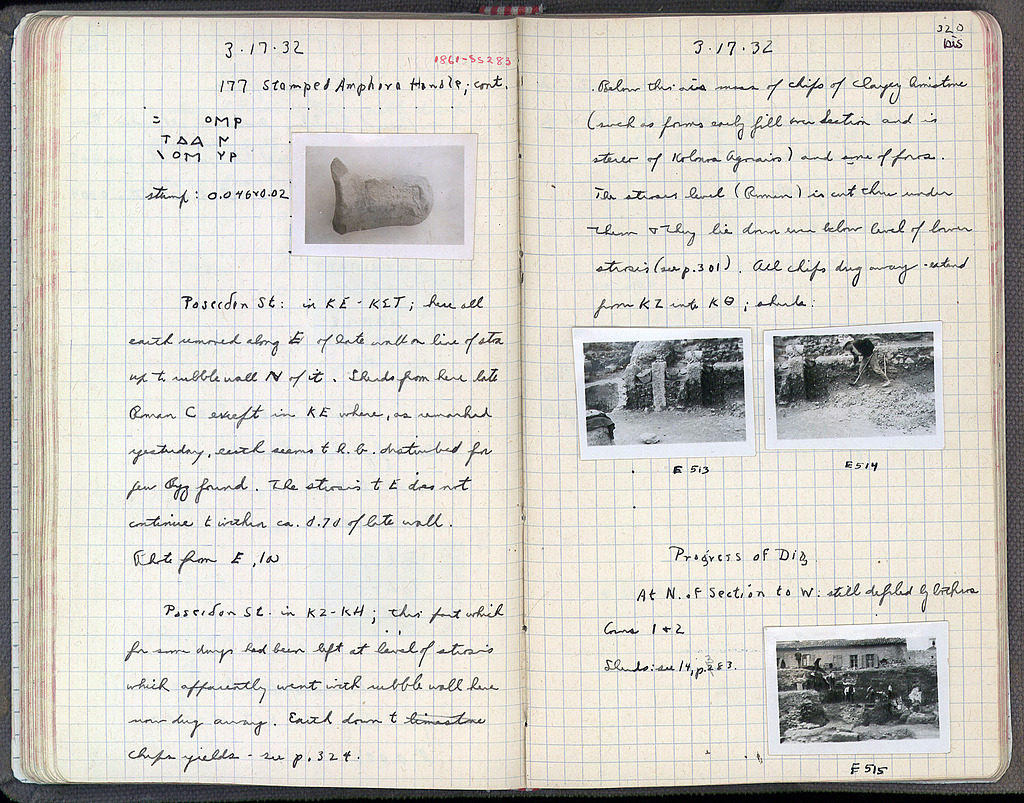 3·17·32
1861-SS283
177 Stamped Amphora Handle, cont.
= OMP
TΔΔ N
\ OM YP
stamp: 0.046x0.02
Poseidon St: in KE-KΣT; here all
earth removed along E of late wall on line of stoa
up to rubble wall N of it. Sherds from here late
Roman C except in KE where, as remarked
yesterday, earth seems t h. b. disturbed for
few Byz found. The strosis t E does not
continue t within ca. 0.70 of late wall.
Photo from E, 10
Poseidon St. in KZ-KH; this part which
for some days had been left at level of strosis
which apparently went with rubble wall here
now dug away. Earth down t limestone
chips yields - see p. 324.
320
bis
3·17·32
Below this a mass of chips of clayey limestone
(such as forms early fill over Section and is
stereo of Kolonos Agoraios) and some of poros.
The strosis level (Roman) is cut thru under
them & they lie down even below level of lower
strosis (see p. 301). All chips dug away - extend
from KZ into KΘ; sherds:
E 513
E 514
Progress of Dig
At N. of Section to W: still defiled by bothros
Coins 1 & 2
Sherds: see 14, p. 283.
E 515